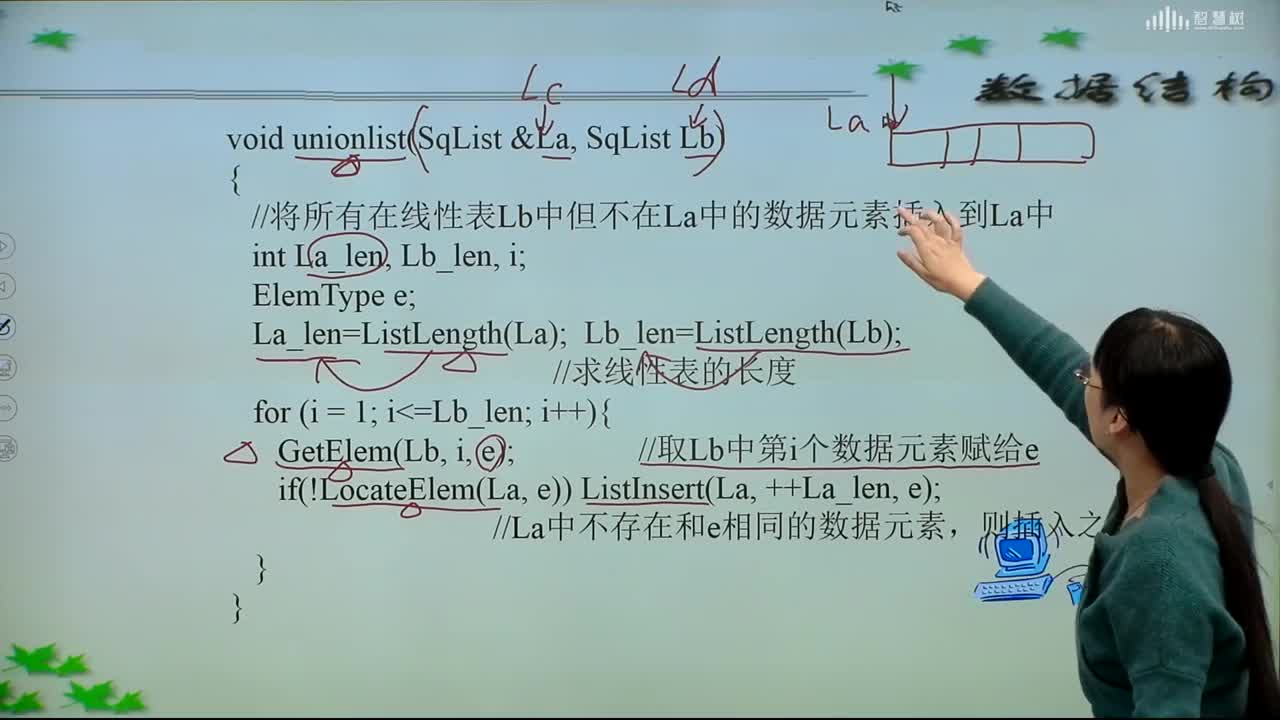 智慧树
数据结构
Lc
Ld
La
void unionlist(SqList &La, SqList Lb)
{
//将所有在线性表Lb中但不在La中的数据元素插入到La中
int La_len, Lb_len, i;
ElemType e;
La_len=ListLength(La); Lb_len=ListLength(Lb);
//求线性表的长度
for (i = 1; i<=Lb_len; i++){
GetElem(Lb, i, e);
//取Lb中第i个数据元素赋给e
if(!LocateElem(La, e)) ListInsert(La, ++La_len, e);
//La中不存在和e相同的数据元素，则插入之
}
}